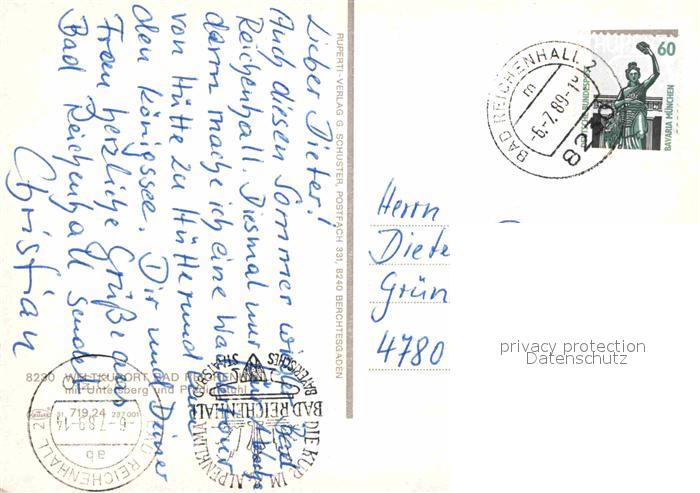 Lieber Dieter!
Auch diesen Sommer wieder Bad
Reichenhall. Diesmal nur Woche
dann mache ich eine Wandertour
von Hütte zu Hütte rund um
den Königssee. Dir und Deiner
Frau herzliche Grüße aus
Bad Reichenhall sendet
Christian
RUPERTI-VERLAG G. SCHUSTER, POSTFACH 331, 8240 BERCHTESGADEN
8230 WELTKURORT BAD REICHENHALL
mit Untersberg und Predigtstuhl
719.24
BAD REICHENHALL 2
-6-7.89-14
ab
BAYERISCHES
STAATSBAD
BAD REICHENHALL
DIE KUR IM
ALPENKLIMA
BAD REICHENHALL 2
m
-6.-7.89-1
60
DEUTSCHE BUNDESPOST
BAVARIA MÜNCHEN
Herrn
Diete
Grün
4780
privacy protection
Datenschutz